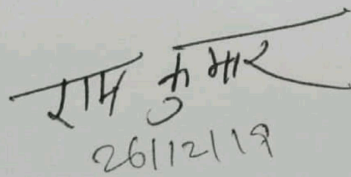 राम कुमार
26/12/19